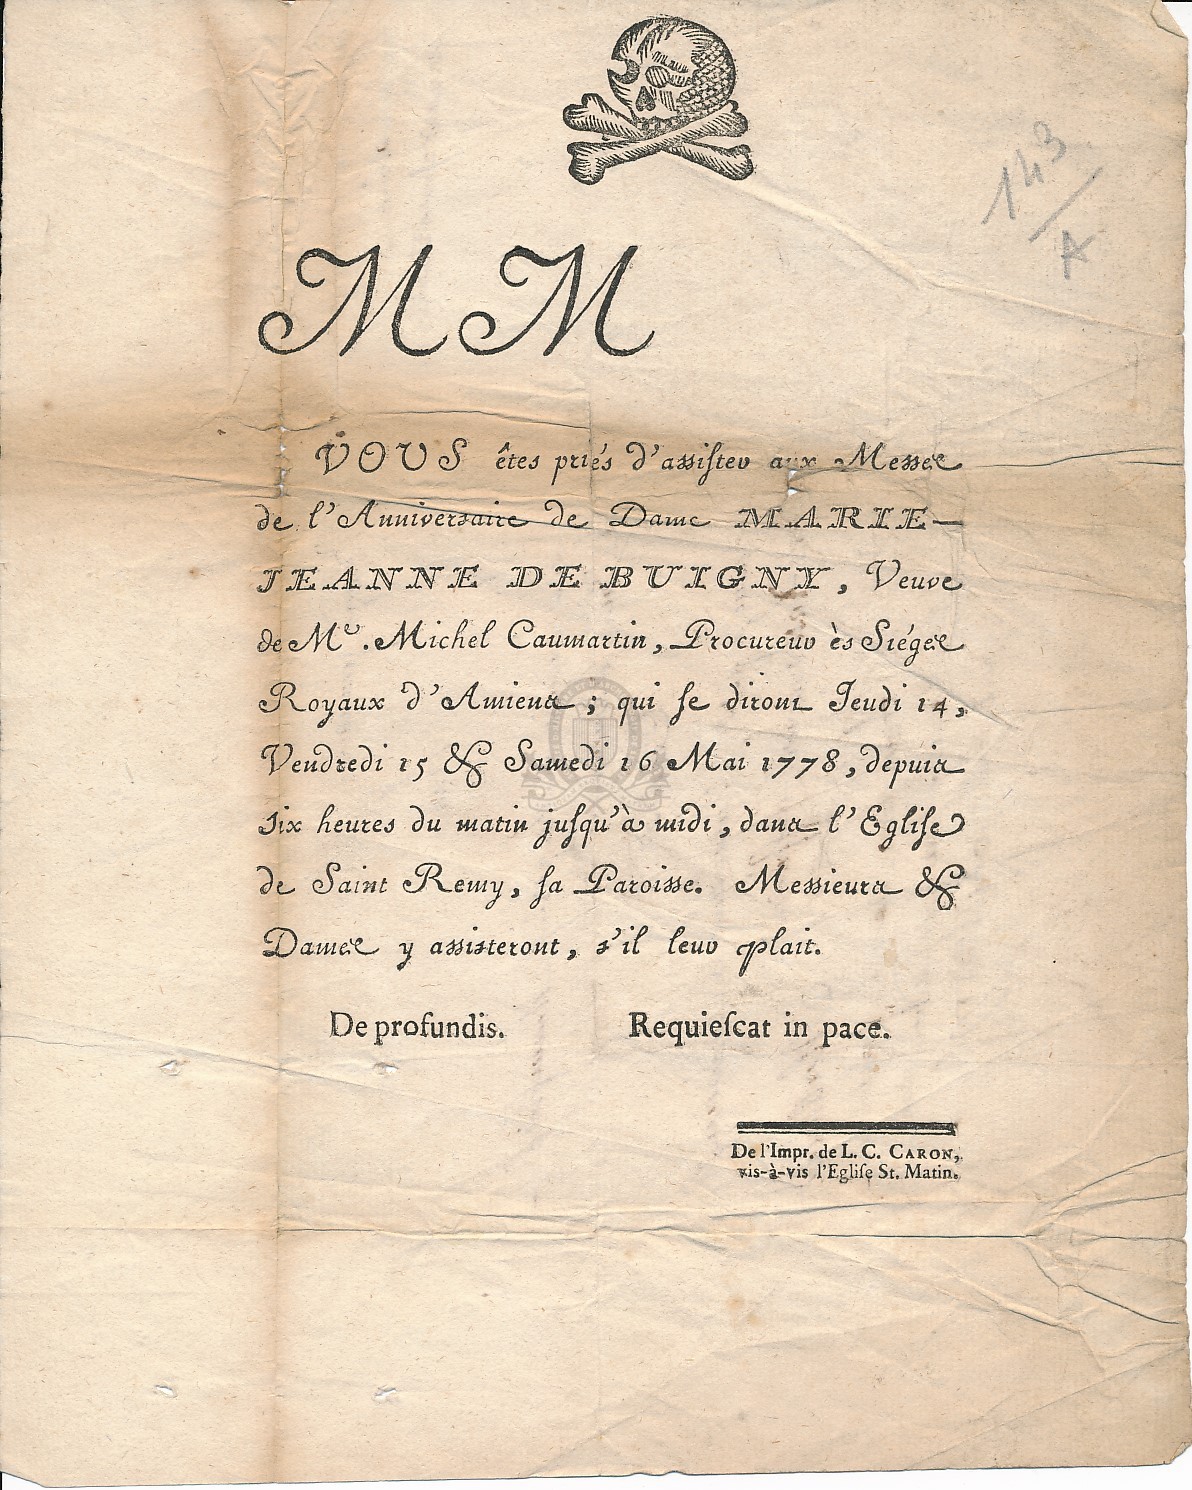 143
A
M M
VOUS êtes priés d'aſſiſter aux Messes
de l'Anniversaire de Dame MARIE-
JEANNE DE BUIGNY, Veuve
de Me. Michel Caumartin, Procureur ès Siéges
Royaux d'Amiens ; qui ſe diront Jeudi 14,
Vendredi 15 & Samedi 16 Mai 1778, depuis
six heures du matin juſqu'à midi, dans l'Egliſe
de Saint Remy, ſa Paroisse. Messieurs &
Dames y assisteront, s'il leur plait.
De profundis. Requieſcat in pace.
De l'Impr. de L. C. CARON,
vis-à-vis l'Egliſe St. Matin.